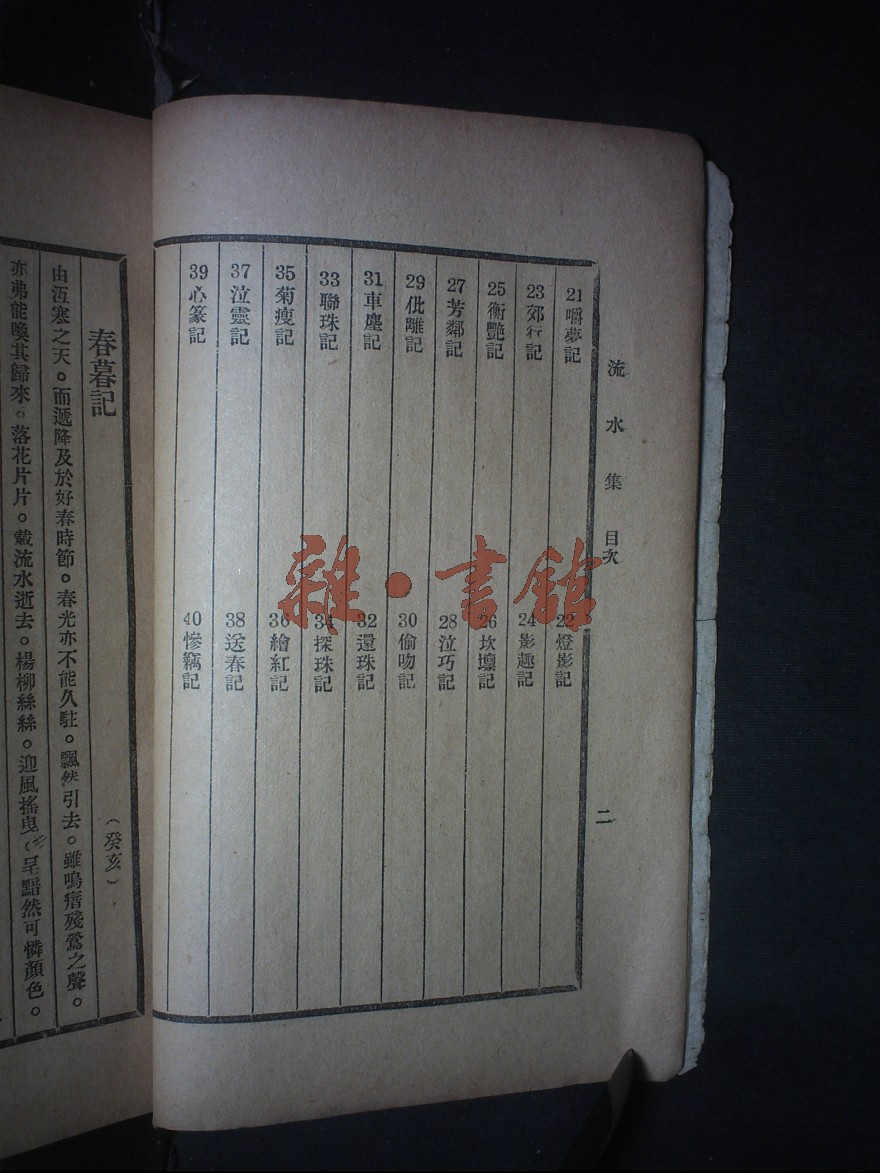 流水集 目次
二
21 嚼夢記
22 燈影記
23 郊行記
24 影趣記
25 衡艷記
26 坎壈記
27 芳鄰記
28 泣巧記
29 仳離記
30 偷吻記
31 車塵記
32 還珠記
33 聯珠記
34 探珠記
35 菊瘦記
36 繪紅記
37 泣靈記
38 送春記
39 心篆記
40 慘竊記
雜·書館
春暮記
(癸亥)
由沍寒之天。而遞降及於好春時節。春光亦不能久駐。飄然引去。雖鳴瘖殘鶯之聲。
亦弗能喚其歸來。落花片片。載流水逝去。楊柳絲絲。迎風搖曳。呈黯然可憐顏色。